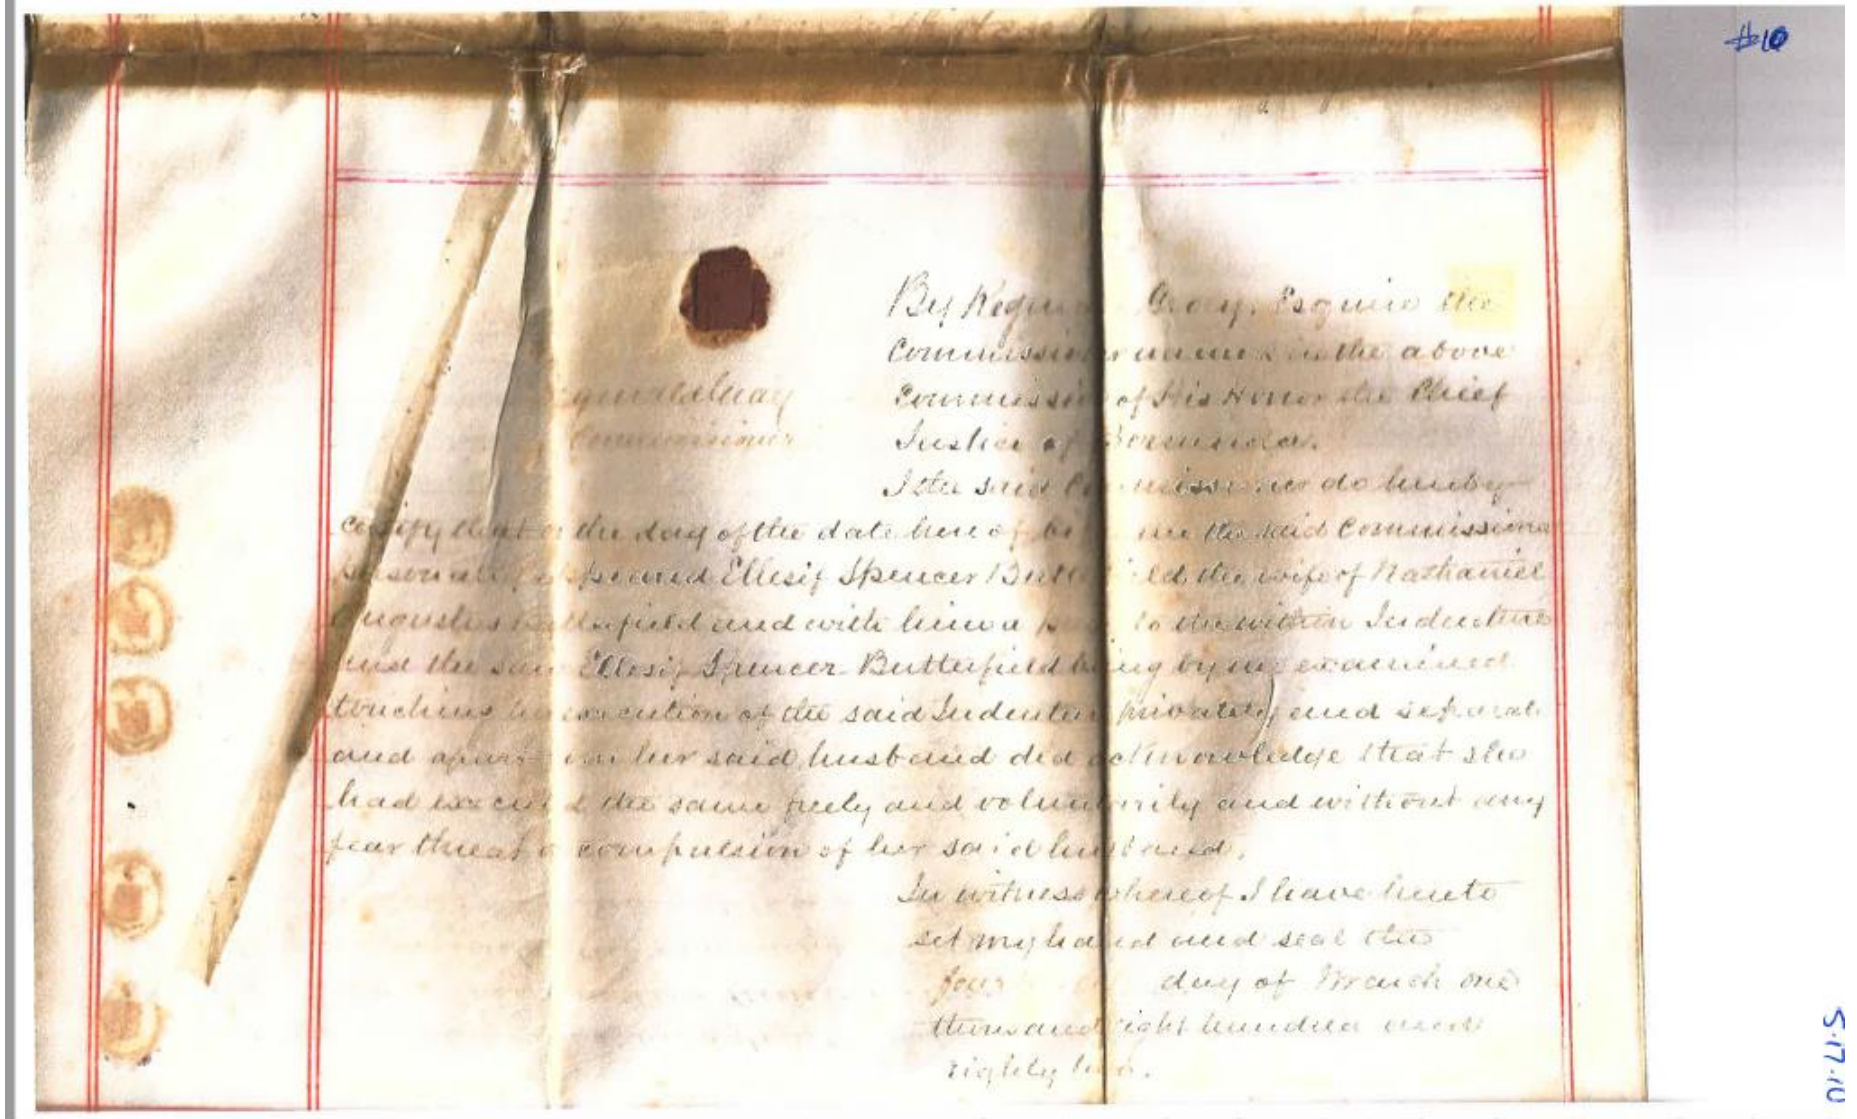 #10
By Gray, Esquire the
Commissioner in the above
Commission of His Honor the Chief
Justice of Bermuda.
Commissioner
I the said Commissioner do hereby
certify that the day of the date hereof me the said Commissioner
Ellesif Spencer Butterfield the wife of Nathaniel
and with him a to the within Indenture
and the said Ellesif Spencer Butterfield being by me examined
touching her execution of the said Indenture privately and separate
and apart her said husband did acknowledge that she
had executed the same freely and voluntarily and without any
fear threat or compulsion of her said husband.
In witness whereof I have hereto
set my hand and seal this
day of March one
thousand eight hundred and
eighty
5.17.10